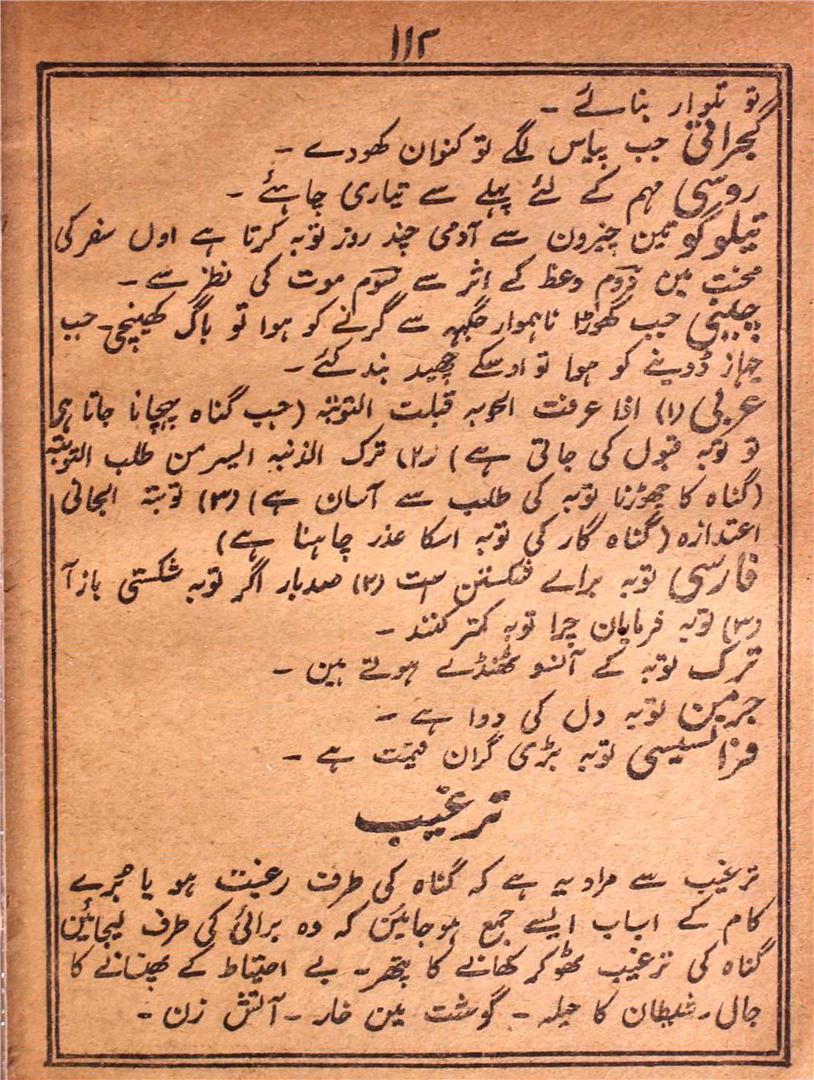 ۱۱۲
تو تلوار بنائے ۔
گجراتی جب پیاس لگے تو کنوان کھودے ۔
روسی مہم کے لئے پہلے سے تیاری چاہئے ۔
تیلوگو تین چیزون سے آدمی چند روز توبہ کرتا ہے اول سفر کی
محنت مین دوم وعظ کے اثر سے سوم موت کی نظر سے ۔
چینی جب گھوڑا ناہموار جگہہ سے گرنے کو ہوا تو باگ کھینچی ۔ جب
جہاز ڈوبنے کو ہوا تو اوسکے چھید بند کئے ۔
عربی (۱) اذا عرفت الحوبہ قبلت التوبتہ (جب گناہ پہچانا جاتا ہی
تو توبہ قبول کی جاتی ہے) (۲) ترک الذنبہ الیسر من طلب التوبتہ
(گناہ کا چھوڑنا توبہ کی طلب سے آسان ہے) (۳) توبتہ الجانی
اعتذارہ (گناہ گار کی توبہ اسکا عذر چاہنا ہے)
فارسی توبہ براے شکستن است (۲) صدبار اگر توبہ شکستی بازآ
(۳) توبہ فرمایان چرا توبہ کمتر کنند ۔
ترک توبہ کے آنسو ٹھنڈے ہوتے ہین ۔
جرمن توبہ دل کی دوا ہے ۔
فرانسیسی توبہ بڑی گران قیمت ہے ۔
ترغیب
ترغیب سے مراد یہ ہے کہ گناہ کی طرف رغبت ہو یا بُرے
کام کے اسباب ایسے جمع ہوجائین کہ وہ برائی کی طرف لیجائین
گناہ کی ترغیب ٹھوکر کھانے کا پتھر ۔ بے احتیاط کے پھنسانے کا
جال ۔ شیطان کا حیلہ ۔ گوشت مین خار ۔ آتش زن ۔